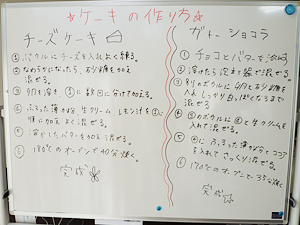 ☆ケーキの作り方☆
チーズケーキ
① ボウルにチーズを入れよく練る。
② なめらかになったら、砂糖を加え
混ぜる。
③ 卵を溶き ②に数回に分け加える。
④ ふるった薄力粉 生クリーム レモン汁を③に
順に加え よく混ぜる。
⑤ 溶かしたバターを加え 混ぜる。
⑥ 180℃のオーブンで40分焼く。
完成
ガトーショコラ
① チョコとバターを
② 溶けたら 混ぜる。
③ 別のボウルに卵と砂糖を
入れ しっかり白っぽくなるまで
混ぜる
④ ③のボウルに②と生クリーム
を入れて混ぜる。
⑤ ④に ふるった薄力粉 ココア
を入れて さっくり混ぜる。
⑥ 170℃のオーブンで35分焼く
完成☆